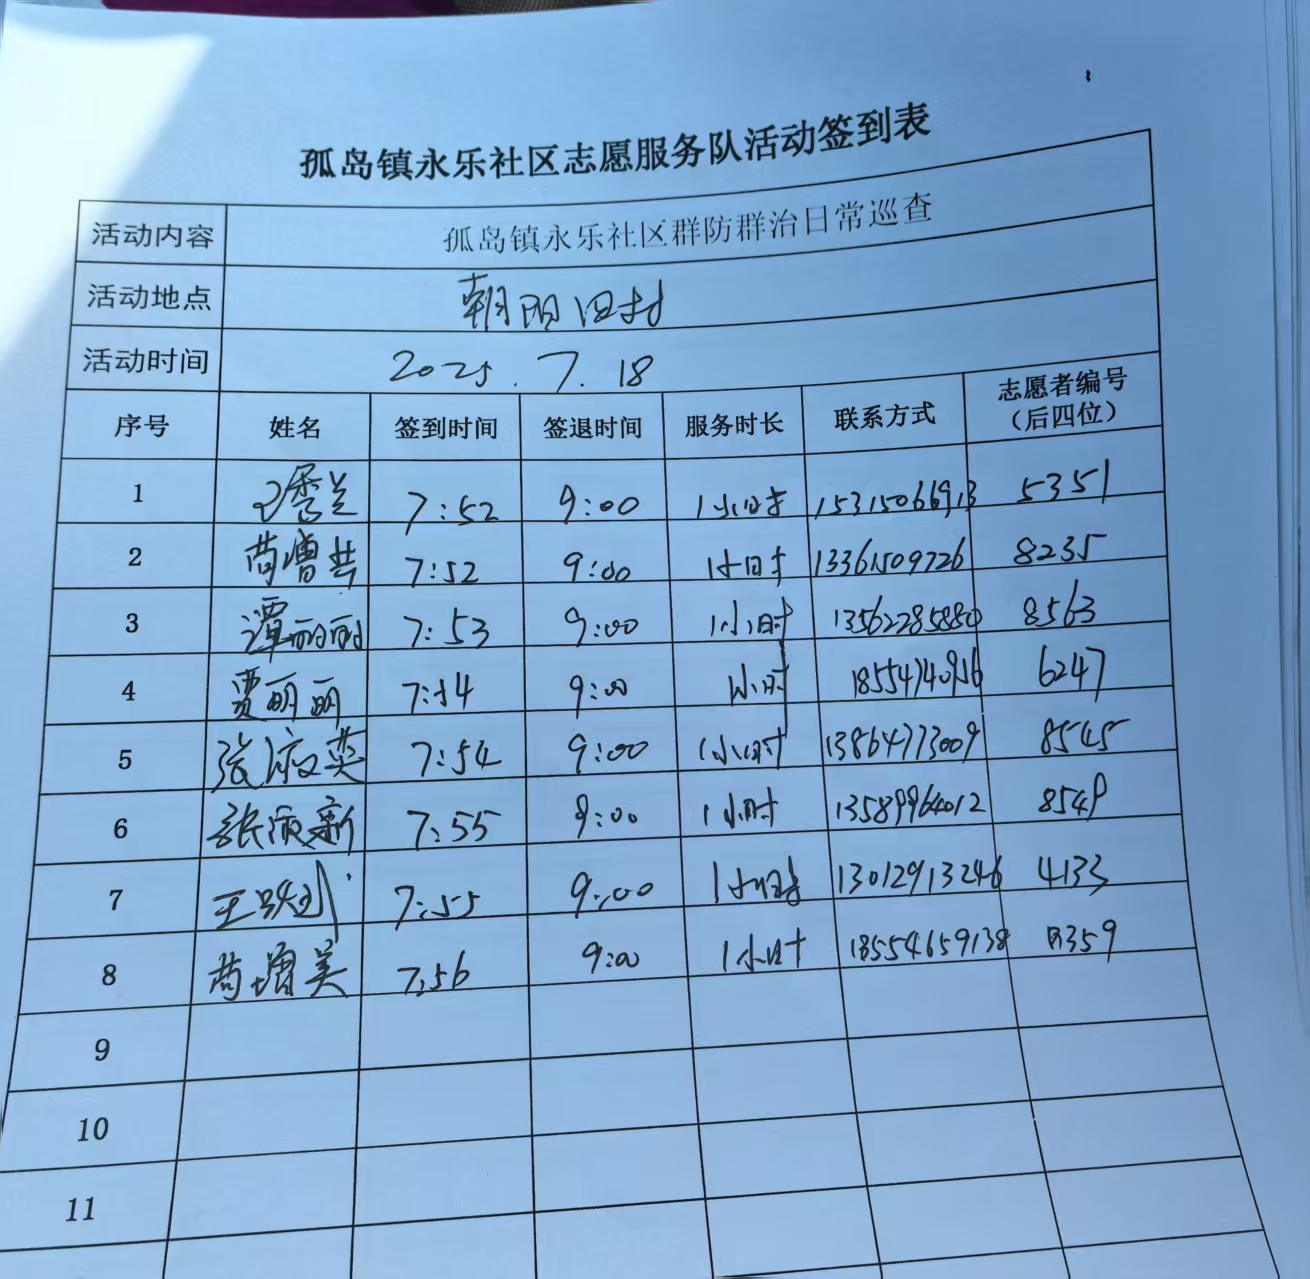 孤岛镇永乐社区志愿服务队活动签到表
活动内容 孤岛镇永乐社区群防群治日常巡查
活动地点 朝阳旧村
活动时间 2025.7.18
序号 姓名 签到时间 签退时间 服务时长 联系方式 志愿者编号（后四位）
1 7:52 9:00 1小时 15315066913 5351
2 7:52 9:00 1小时 13361509726 8235
3 谭丽丽 7:53 9:00 1小时 13562285880 8563
4 贾丽丽 7:54 9:00 1小时 18554740916 6247
5 7:54 9:00 1小时 13864773009 8545
6 7:55 9:00 1小时 13589964012 8549
7 7:55 9:00 1小时 13012913246 4133
8 苟增美 7:56 9:00 1小时 18554659138
9
10
11